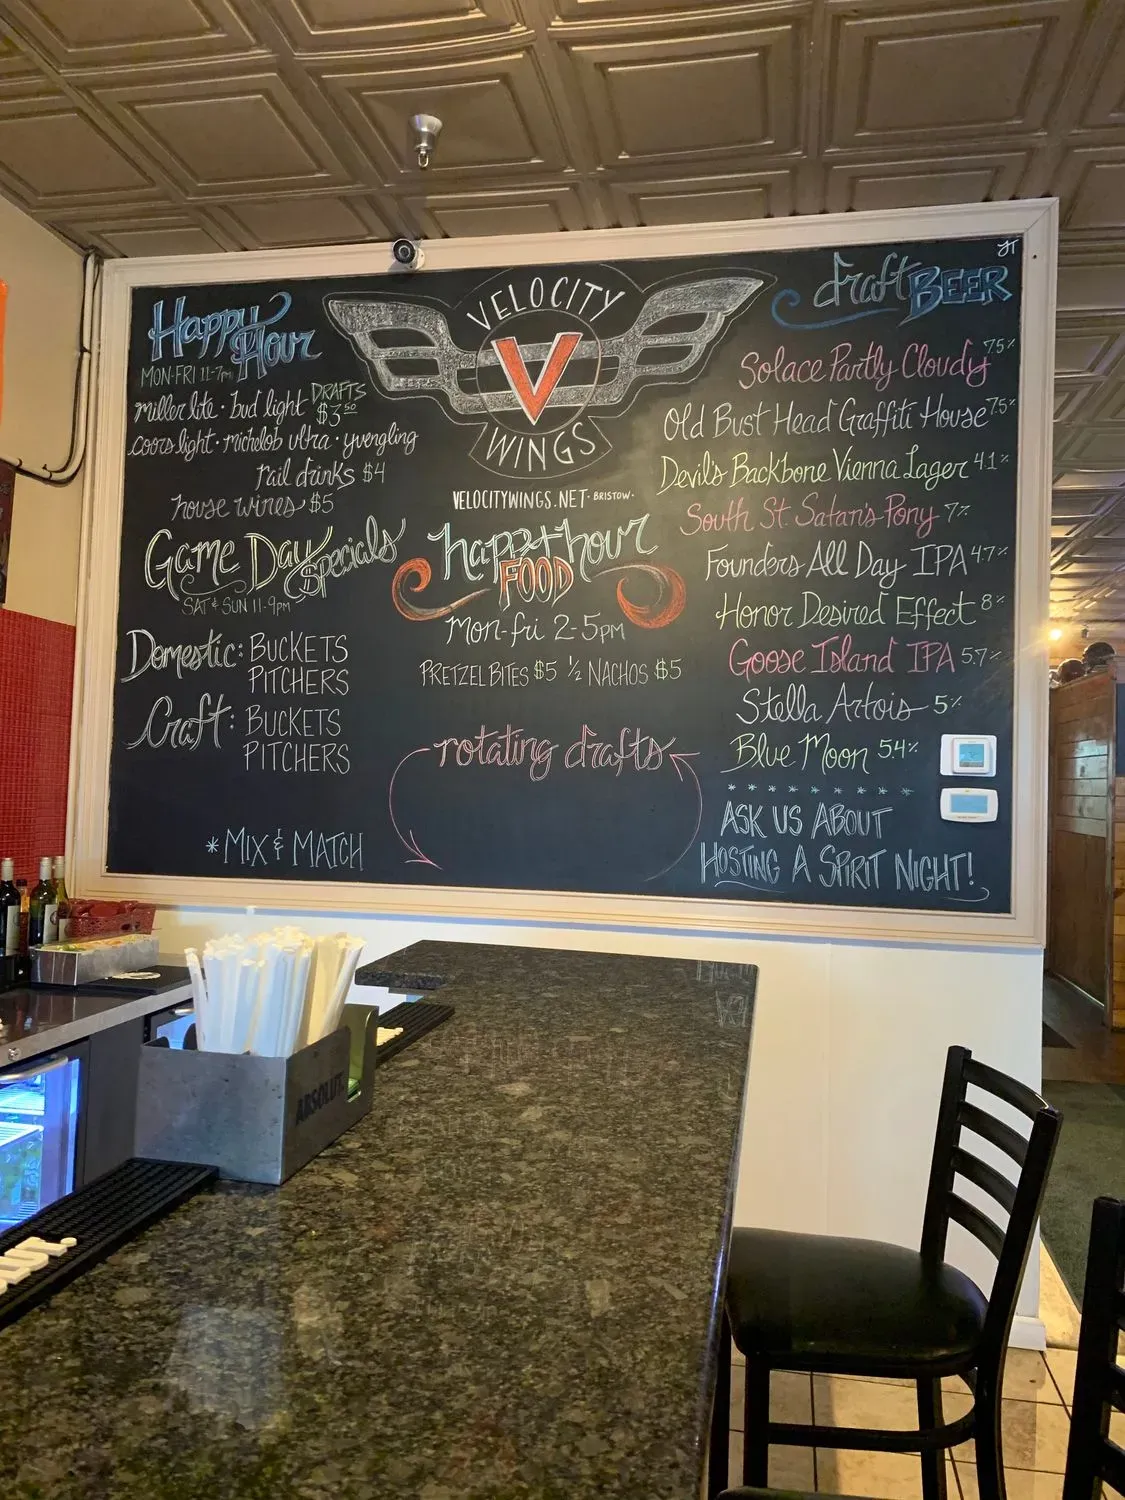 Happy Hour
MON-FRI 11-7pm
miller lite · bud light DRAFTS $3.50
coors light · michelob ultra · yuengling
rail drinks $4
house wines $5
Game Day Specials
SAT & SUN 11-9pm
Domestic: BUCKETS
PITCHERS
Craft: BUCKETS
PITCHERS
*MIX & MATCH
VELOCITY
V
WINGS
VELOCITYWINGS.NET · BRISTOW ·
happy hour
FOOD
Mon-fri 2-5PM
PRETZEL BITES $5 ½ NACHOS $5
rotating drafts
JT
draft BEER
Solace Partly Cloudy 7.5%
Old Bust Head Graffiti House 7.5%
Devil's Backbone Vienna Lager 4.1%
South St. Satan's Pony 7%
Founders All Day IPA 4.7%
Honor Desired Effect 8%
Goose Island IPA 5.7%
Stella Artois 5%
Blue Moon 5.4%
* * * * * * * * *
ASK US ABOUT
HOSTING A SPIRIT NIGHT!
ABSOLUT